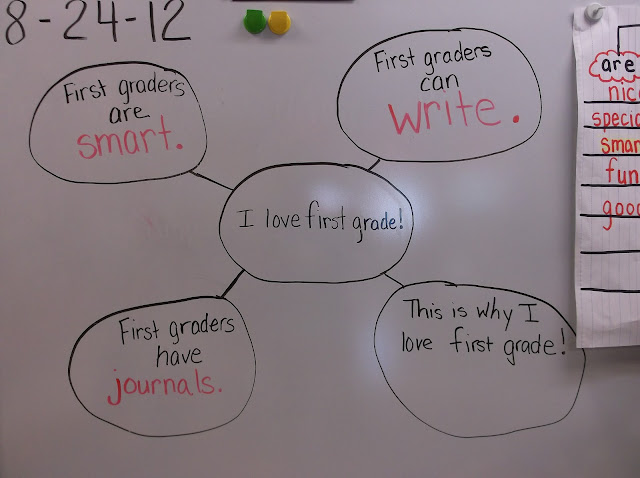 8-24-12
First graders
are
smart.
First graders
can
write.
I love first grade!
First graders
have
journals.
This is why I
love first grade!
are